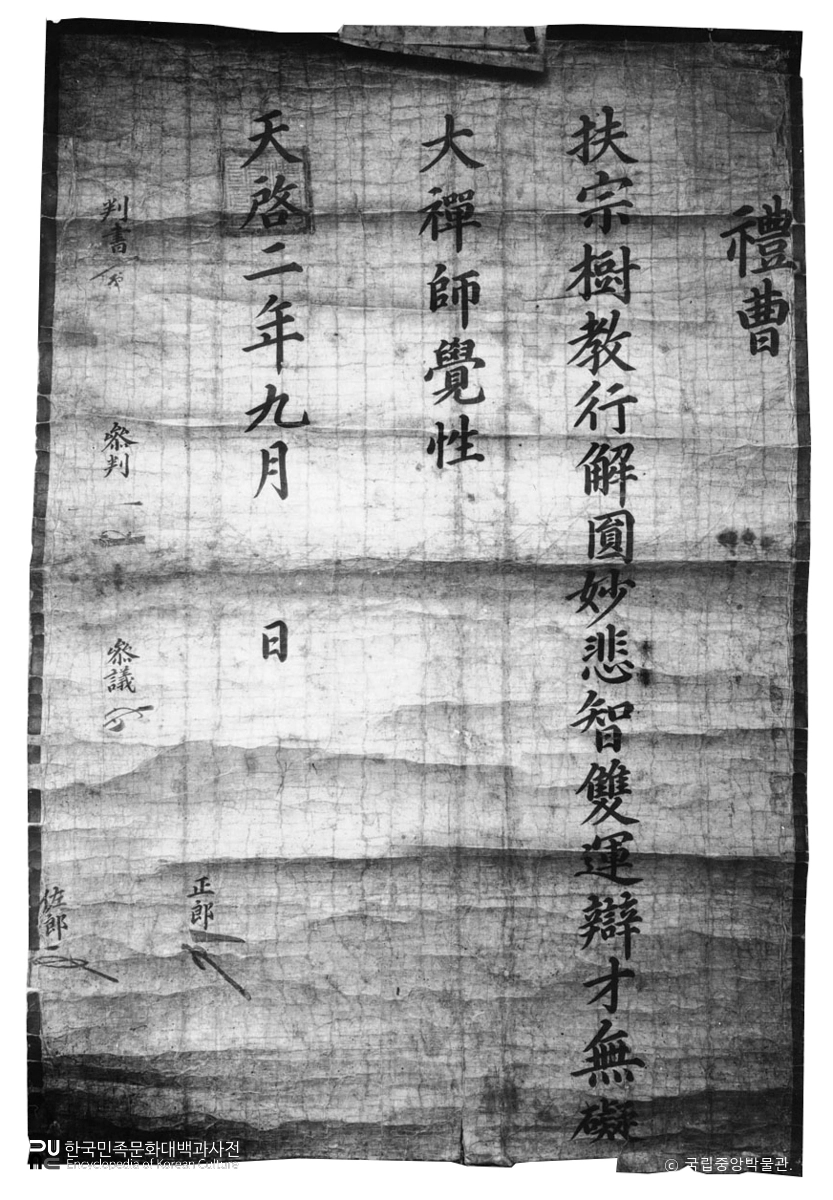 禮曹
扶宗樹教行解圓妙悲智雙運辯才無礙
大禪師覺性
天啓二年九月 日
正郎
判書
參判
參議
佐郎
한국민족문화대백과사전
Encyclopedia of Korean Culture
© 국립중앙박물관.